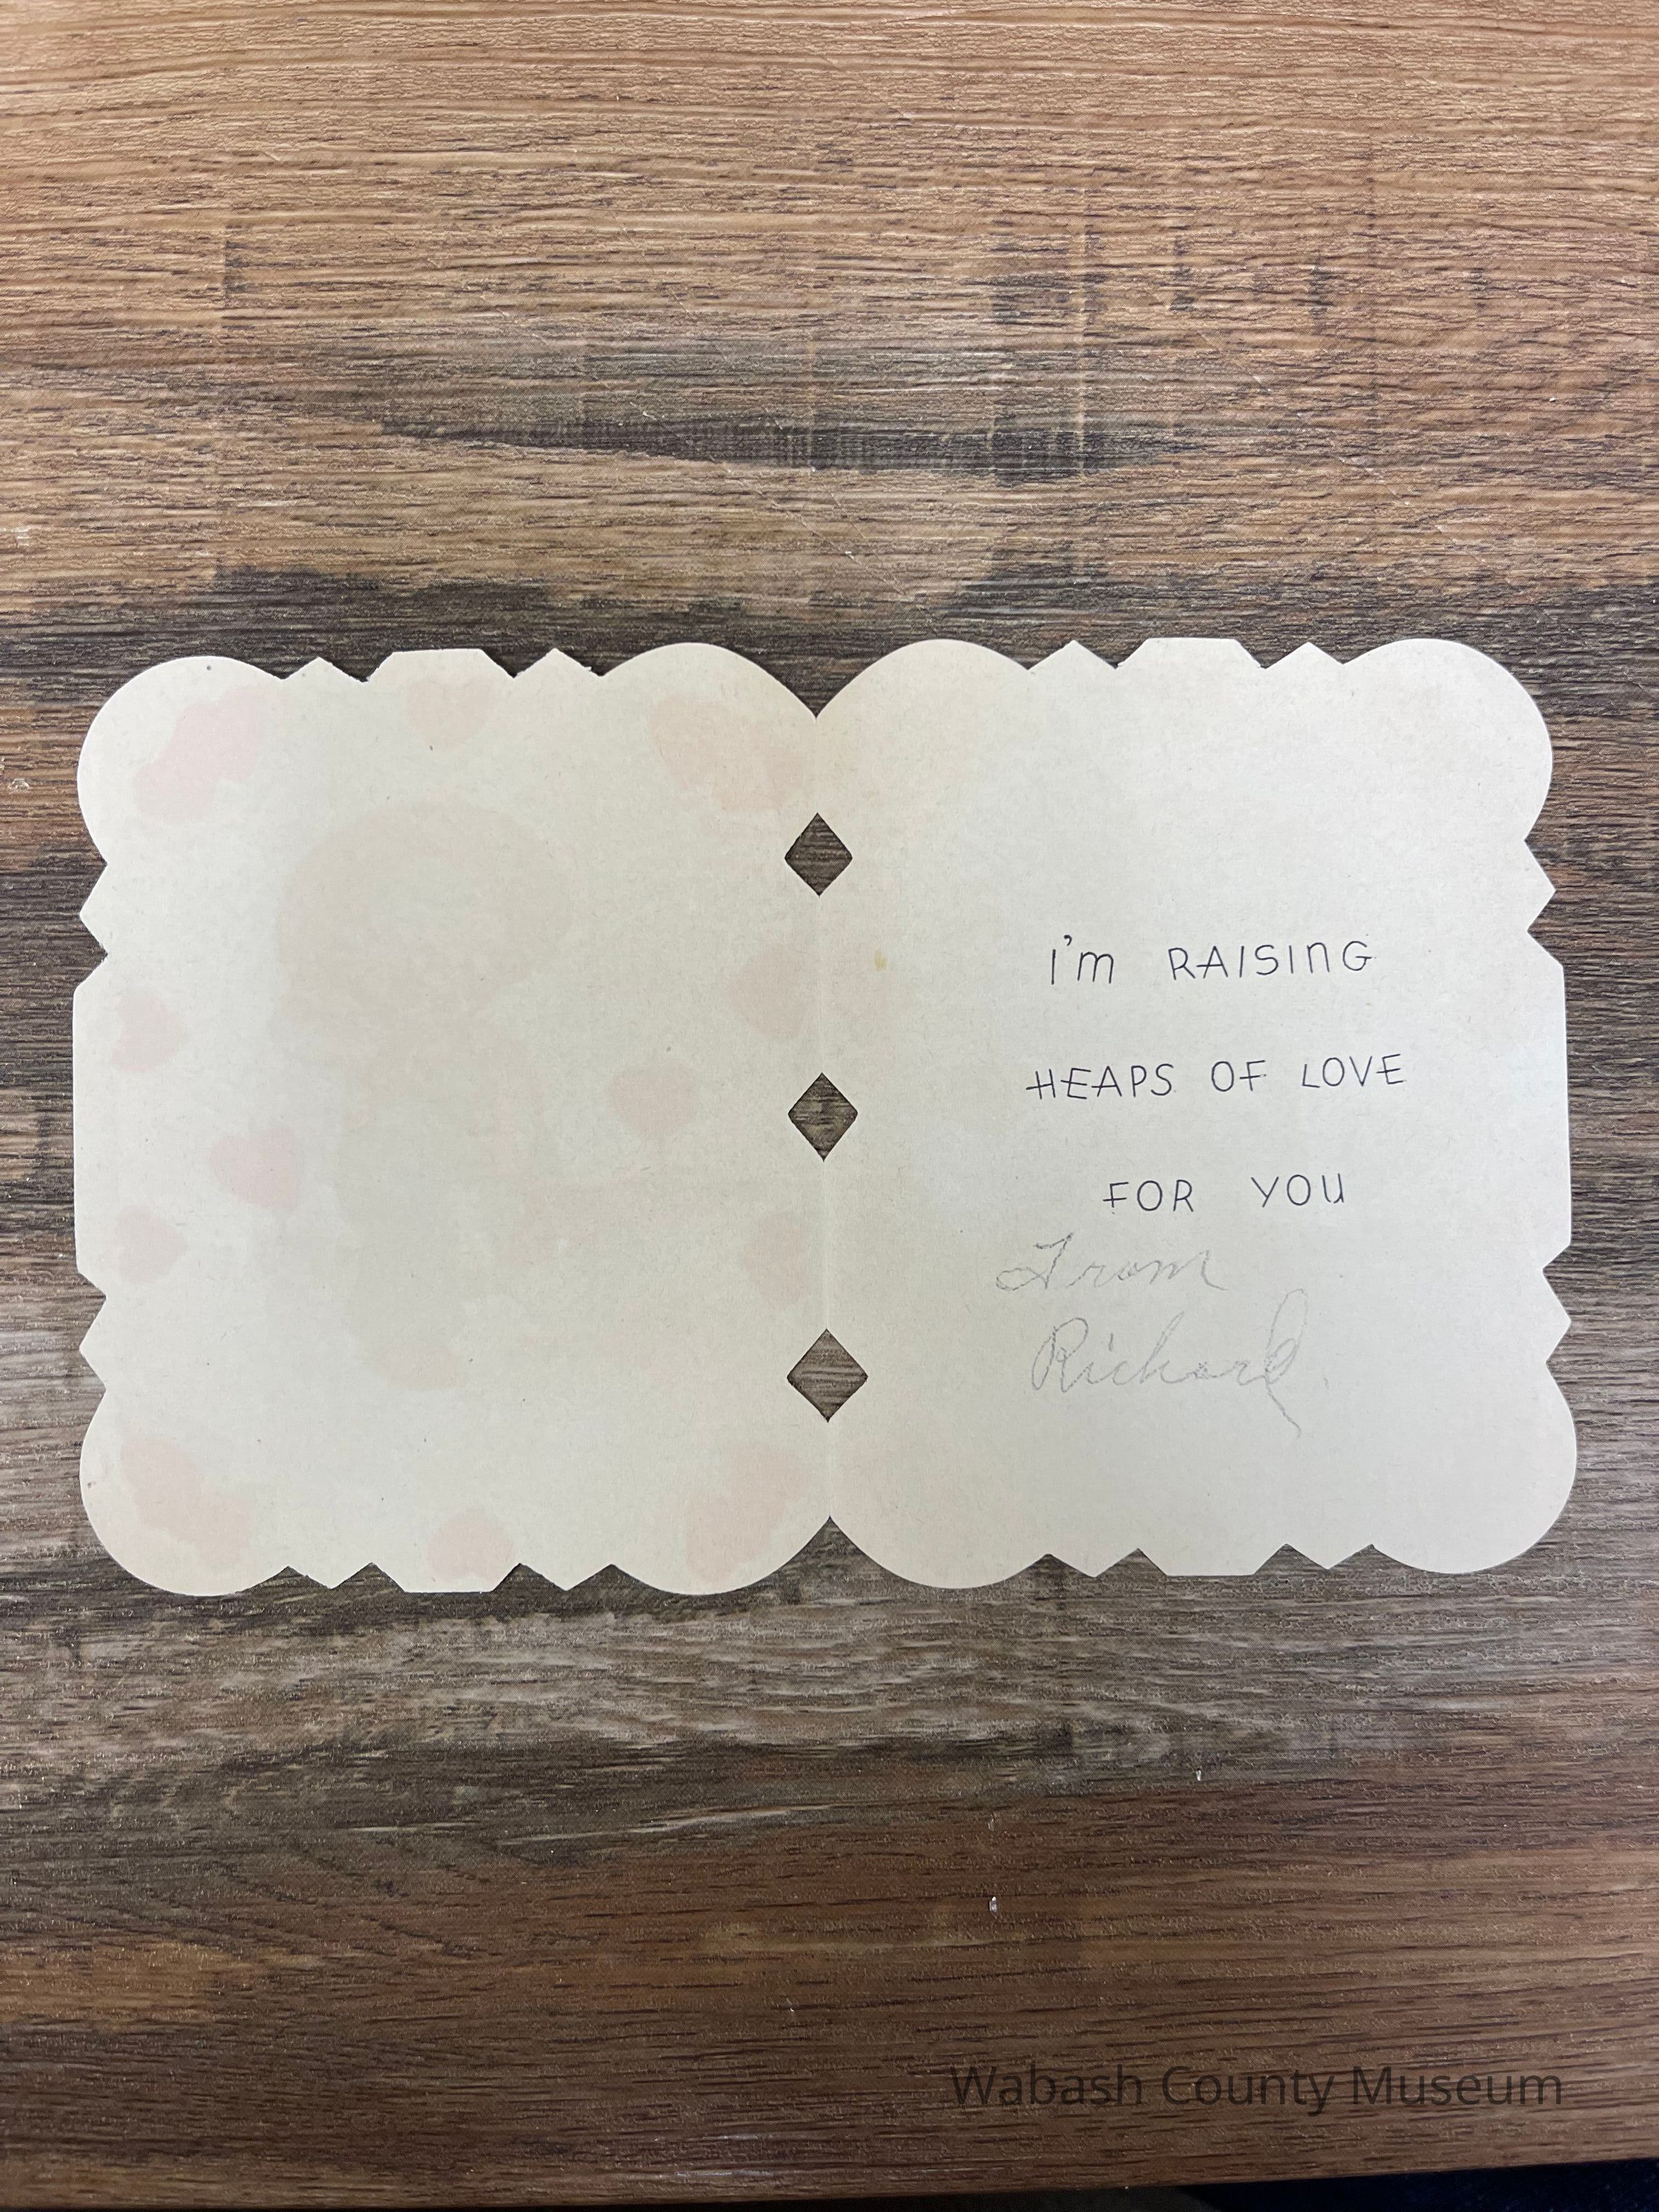 I'm RAISING
HEAPS OF LOVE
FOR YOU
From
Richard
Wabash County Museum